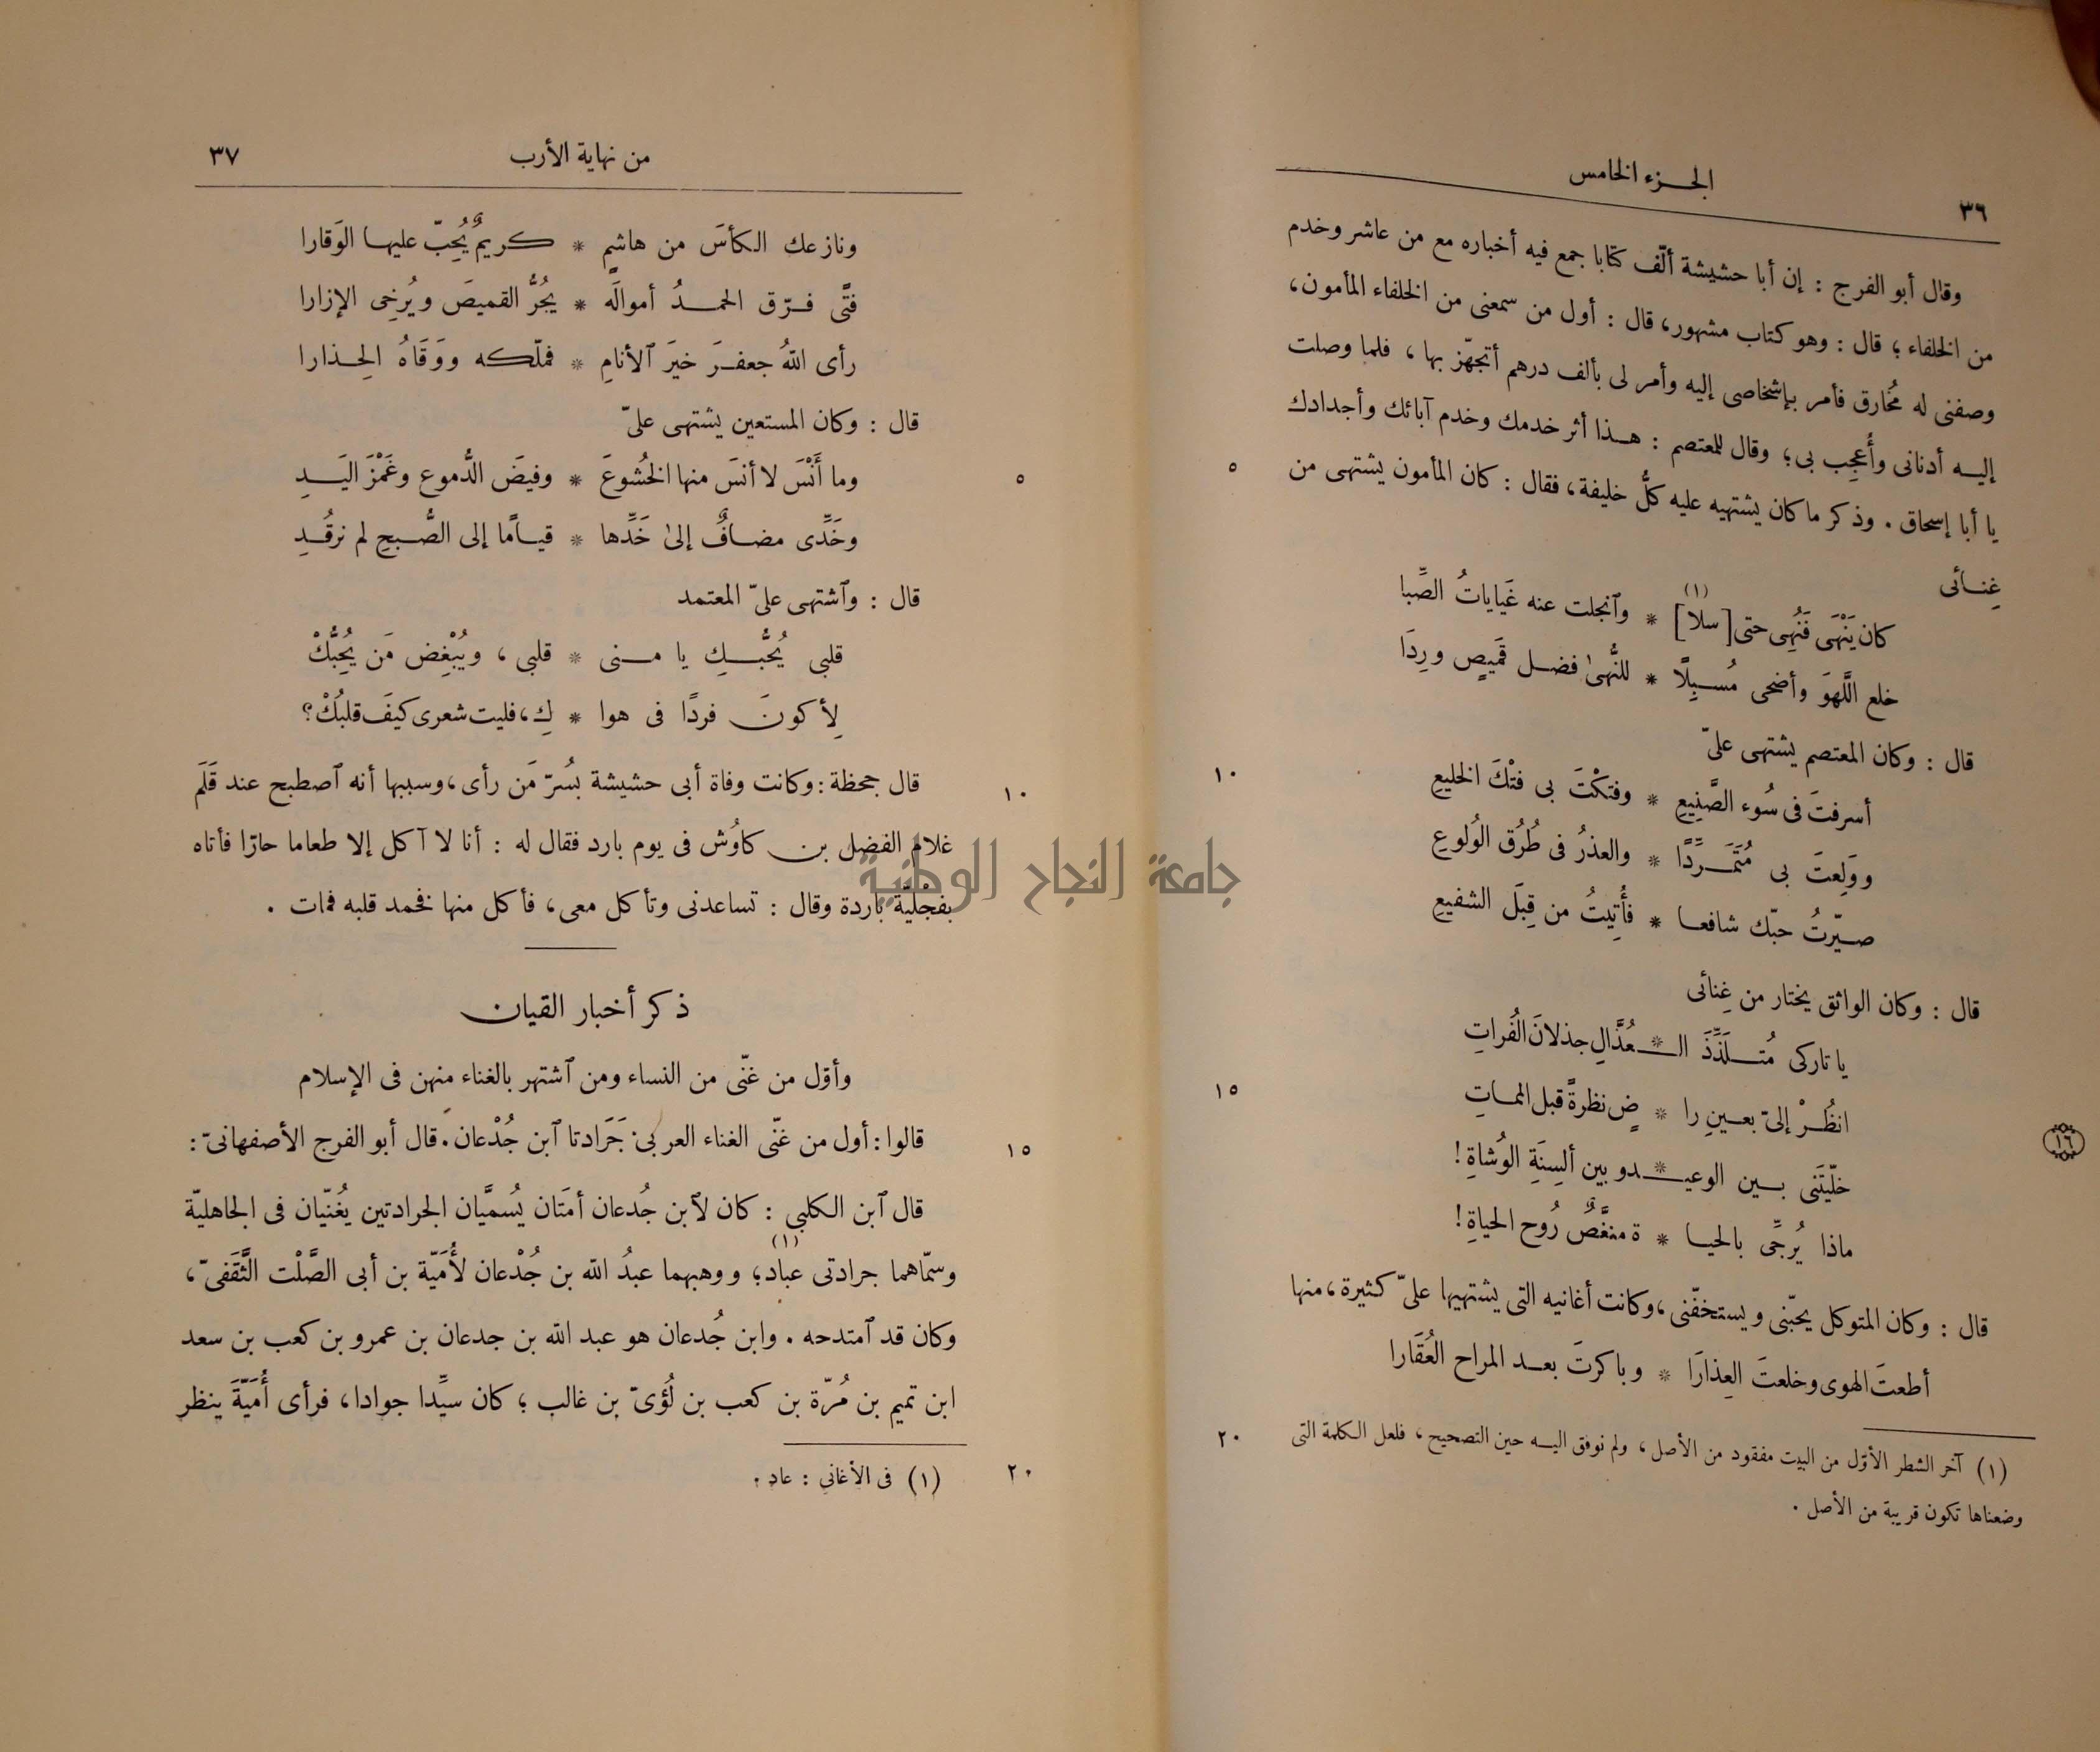 الجزء الخامس
٣٦
وقال أبو الفرج : إن أبا حشيشة ألّف كتابا جمع فيه أخباره مع من عاشر وخدم
من الخلفاء ؛ قال : وهو كتاب مشهور، قال : أول من سمعنى من الخلفاء المأمون،
وصفنى له مُخارق فأمر بإشخاصى إليه وأمر لى بألف درهم أتجهّز بها ، فلما وصلت
إليه أدنانى وأُعجِب بى؛ وقال للمعتصم : هذا أثر خدمك وخدم آبائك وأجدادك
يا أبا إسحاق . وذكر ما كان يشتهيه عليه كلُّ خليفة، فقال : كان المأمون يشتهى من
٥
غِنائى
كان يَنْهَى فَنُهِى حتى [سلا] (١) * وٱنجلت عنه غَيايَاتُ الصِّبا
خلع اللَّهوَ وأضحى مُسبِلًا * للنُّهىٰ فضل قَميصٍ ورِدَا
قال : وكان المعتصم يشتهى علىّ
أسرفتَ فى سُوء الصَّنِيعِ * وفتكْتَ بى فتْكَ الخليعِ
١٠
ووَلِعتَ بى مُتَمَرِّدًا * والعذرُ فى طُرُق الوُلوعِ
صيّرتُ حبّك شافعا * فأُتِيتُ من قِبَل الشفيعِ
قال : وكان الواثق يختار من غِنائى
يا تاركى مُتلَذِّذَ الـ * ـعُذَّالِ جذلانَ الفُراتِ
انظُرْ إلىّ بعينِ را * ضٍ نظرةً قبل المماتِ
١٥
خلّيتَنى بين الوعيـ * ـد وبين ألسِنَةِ الوُشاةِ!
ماذا يُرجِّى بالحيا * ة منغَّصٌ رُوح الحياةِ!
١٦
قال : وكان المتوكل يحبّنى ويستخفّنى، وكانت أغانيه التى يشتهيها علىّ كثيرة، منها
أطعتَ الهوى وخلعتَ العِذارَا * وباكرتَ بعد المراح العُقَارا
(١) آخر الشطر الأوّل من البيت مفقود من الأصل، ولم نوفق اليه حين التصحيح، فلعل الكلمة التى
٢٠
وضعناها تكون قريبة من الأصل .
من نهاية الأرب
٣٧
ونازعك الكأسَ من هاشمٍ * كريمٌ يُحِبّ عليها الوَقارا
فتًى فرّق الحمدُ أموالَه * يجُرُّ القميصَ ويُرخِى الإزارا
رأى اللهُ جعفرَ خيرَ ٱلأنامِ * فملّكه ووَقَاهُ الحِذارا
قال : وكان المستعين يشتهى علىّ
وما أَنْسَ لا أنسَ منها الخُشوعَ * وفيضَ الدُّموع وغَمْزَ اليَدِ
٥
وخَدِّى مضافٌ إلىٰ خَدِّها * قيامًا إلى الصُّبحِ لم نرقُدِ
قال : وٱشتهى علىّ المعتمد
قلبى يُحُّبكِ يا منى * قلبى ، ويُبْغِض مَن يُحِبُّكْ
لِأكونَ فردًا فى هوا * كِ، فليت شعرى كيفَ قلبُكْ؟
قال جحظة : وكانت وفاة أبى حشيشة بسُرّ مَن رأى، وسببها أنه ٱصطبح عند قَلَم
١٠
غلام الفضل بن كاوُش فى يوم بارد فقال له : أنا لا آكل إلا طعاما حارّا فأتاه
بفجْليّة باردة وقال : تساعدنى وتأكل معى، فأكل منها فخمد قلبه فمات .
جامعة النجاح الوطنية
ذكر أخبار القيان
وأوّل من غنّى من النساء ومن ٱشتهر بالغناء منهن فى الإسلام
قالوا : أول من غنّى الغناء العربىّ جَرَادتا ٱبن جُدْعان . قال أبو الفرج الأصفهانىّ :
١٥
قال ٱبن الكلبى : كان لٱبن جُدعان أمَتَان يُسمَّيان الجرادتين يُغنّيان فى الجاهليّة
وسمّاهما جرادتى عباد (١)؛ ووهبهما عبدُ الله بن جُدْعان لأُمَيّة بن أبى الصَّلْت الثَّقَفىّ،
وكان قد ٱمتدحه . وابن جُدعان هو عبد الله بن جدعان بن عمرو بن كعب بن سعد
ابن تميم بن مُرّة بن كعب بن لُؤىّ بن غالب ؛ كان سيِّدا جوادا، فرأى أُمَيّةَ ينظر
(١) فى الأغانى : عاد .
٢٠